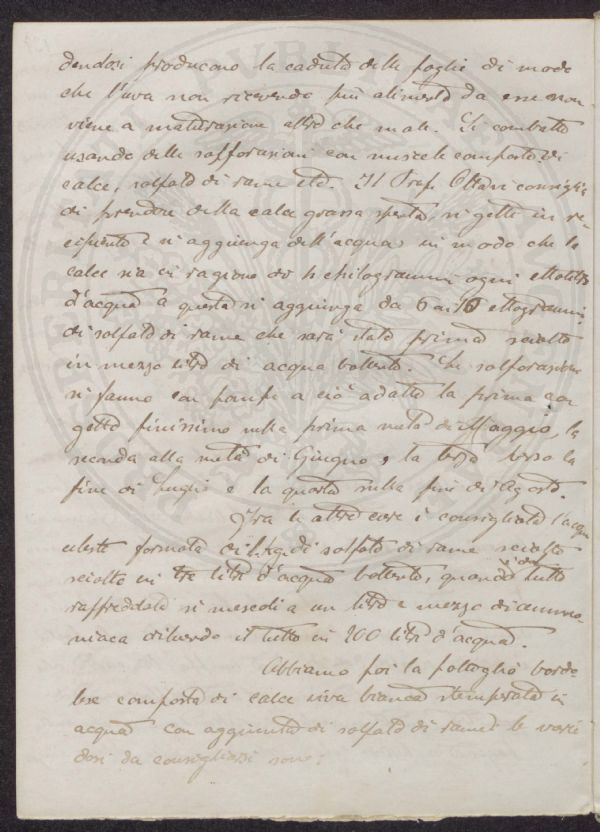 dendosi producono la caduta delle foglie di modo
che l'uva non ricevendo più alimento da esse non
viene a maturazione altro che male. Si combatte
usando delle solforazioni con miscele composte di
calce, solfato di rame etc. Il Prof. Ottavi consiglia
di prendere della calce grassa spenta, si getti in re-
cipiente e si aggiunga dell'acqua in modo che la
calce sia in ragione di chilogrammi ogni ettolitro
d'acqua a questa si aggiunga da 6 a 10 ettogrammi
di solfato di rame che sarà stato prima sciolto
in mezzo litro di acqua bollente. Le solforazioni
si fanno con pompe a ciò adatte la prima con
getto finissimo nella prima metà di Maggio, la
seconda alla metà di Giugno, la terza verso la
fine di Luglio e la quarta sulla fine di Agosto.
Fra le altre cose è consigliata l'acqua
celeste formata di 1 Kg. di solfato di rame sciolto
sciolto in tre litri d'acqua bollente, quando tutto
raffreddato si mescoli a un litro e mezzo di ammo-
niaca diluendo il tutto in 200 litri d'acqua.
Abbiamo poi la poltiglia borde-
lese composta di calce viva bianca stemperata in
acqua con aggiunta di solfato di rame le varie
dosi da consigliarsi sono: